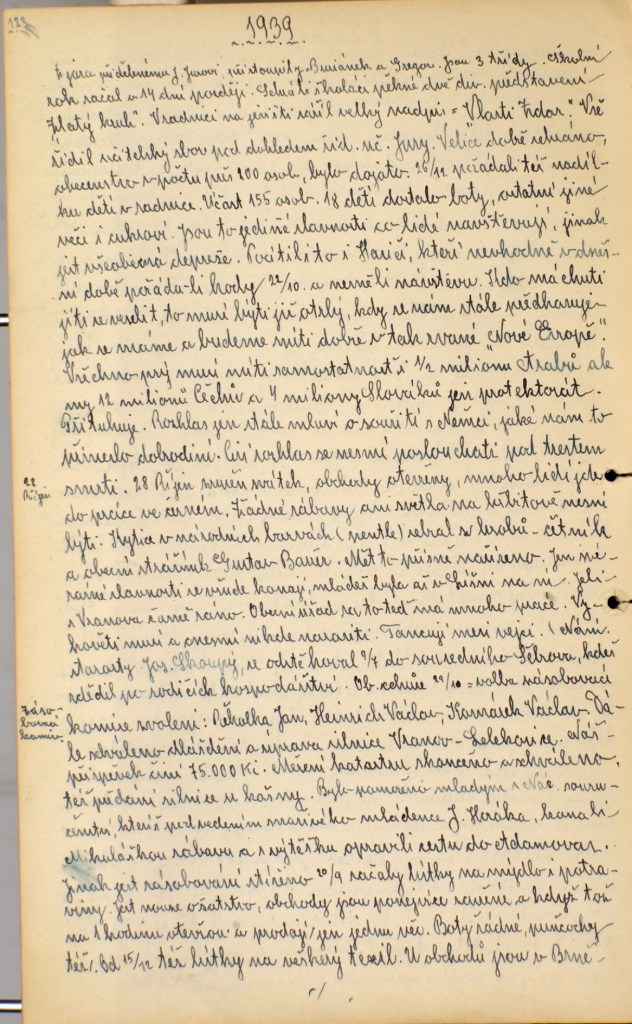 123
1939
k jara přidělenému J. Jurovi, přistoupily Buriánek a Gregor. Jsou 3 třídy. Školní
rok začal o 14 dní později. Sehráli školáci pěkné dvě div. představení
Zlatý kruh". Vzadu na jevišti zářil velký nadpis = „Vlasti Zdar". Vše
řídil učitelský sbor pod dohledem říd. uč. Jury. Velice dobře sehráno,
obecenstvo v počtu přes 200 osob, bylo dojato. 26/12 pořádali též nadíl-
ku dětí v radnice. Účast 155 osob. 18 dětí dostalo boty, ostatní jiné
věci i cukroví. Jsou to jediné slavnosti co lidé navštěvují, jinak
jest všeobecná deprese. Pocítili to i Hasiči, kteří nevhodně v dneš-
ní době pořáda-li hody 22/10. a neměli návštěvu. Kdo má chuti
jíti se veselit, to musí býti již otrlý, kdy se nám stále předhazuje
jak se máme a budeme míti dobře v tak zvané „Nové Evropě".
Všechno prý musí míti samostatnost i 1/2 milionu Arabů ale
my 12 milionů Čechův a 4 miliony Slováků jen protektorát.
Přituhuje. Rozhlas jen stále mluví o soužití s Němci, jaké nám to
přineslo dobrodiní. Cizí rozhlas se nesmí poslouchati pod trestem
smrti. 28 Říjen zrušen svátek, obchody otevřeny, mnoho lidí jde
28 Říjen
do práce ve černém. Žádné zábavy ani světla na hřbitově nesmí
býti. Kytice v národních barvách (pentle) sebral s hrobů - četník
a obecní strážník Gustav Bauer. Měl to přísně nařízeno. Jen
slavnosti se všude konají, mládež byla až v Líšni na
z Vranova časně ráno. Obecní úřad za to teď má mnoho práce. Vy-
hověti musí a nesmí nikde naraziti. Tancují mezi vejci. (Nám.
starosty Jos. Skoupý, se odstěhoval 9/7 do sousedního Šebrova, kdež
zdědil po rodičích hospodářství. Ob. schůze 29/10 = volba zásobovací
Záso-
bovací
komise
komise zvoleni: Pěkolka Jan, Heinrich Václav, Komárek Václav. Dá-
le schváleno dláždění a úprava silnice Vranov - Lelekovice. Náš
příspěvek činí 75.000 Kč. Měření katastru skončeno a schváleno,
též předání silnice u kašny. Bylo pomoženo mladým z Nár. souru-
čenství, kteří pod vedením snaživého mládence J. Horáka, konali
Mikulášskou zábavu a s výtěžku opravili cestu do Adamova.
Jinak jest zásobování stíženo 20/9 začaly lístky na mýdlo i potra-
viny. Jest nouze o šatstvo, obchody jsou ponejvíce zavřené a když tož
na 1 hodinu otevřou a prodají jen jednu věc. Boty žádné, punčochy
též. Od 15/12 též lístky na veškerý textil. U obchodů jsou v Brně